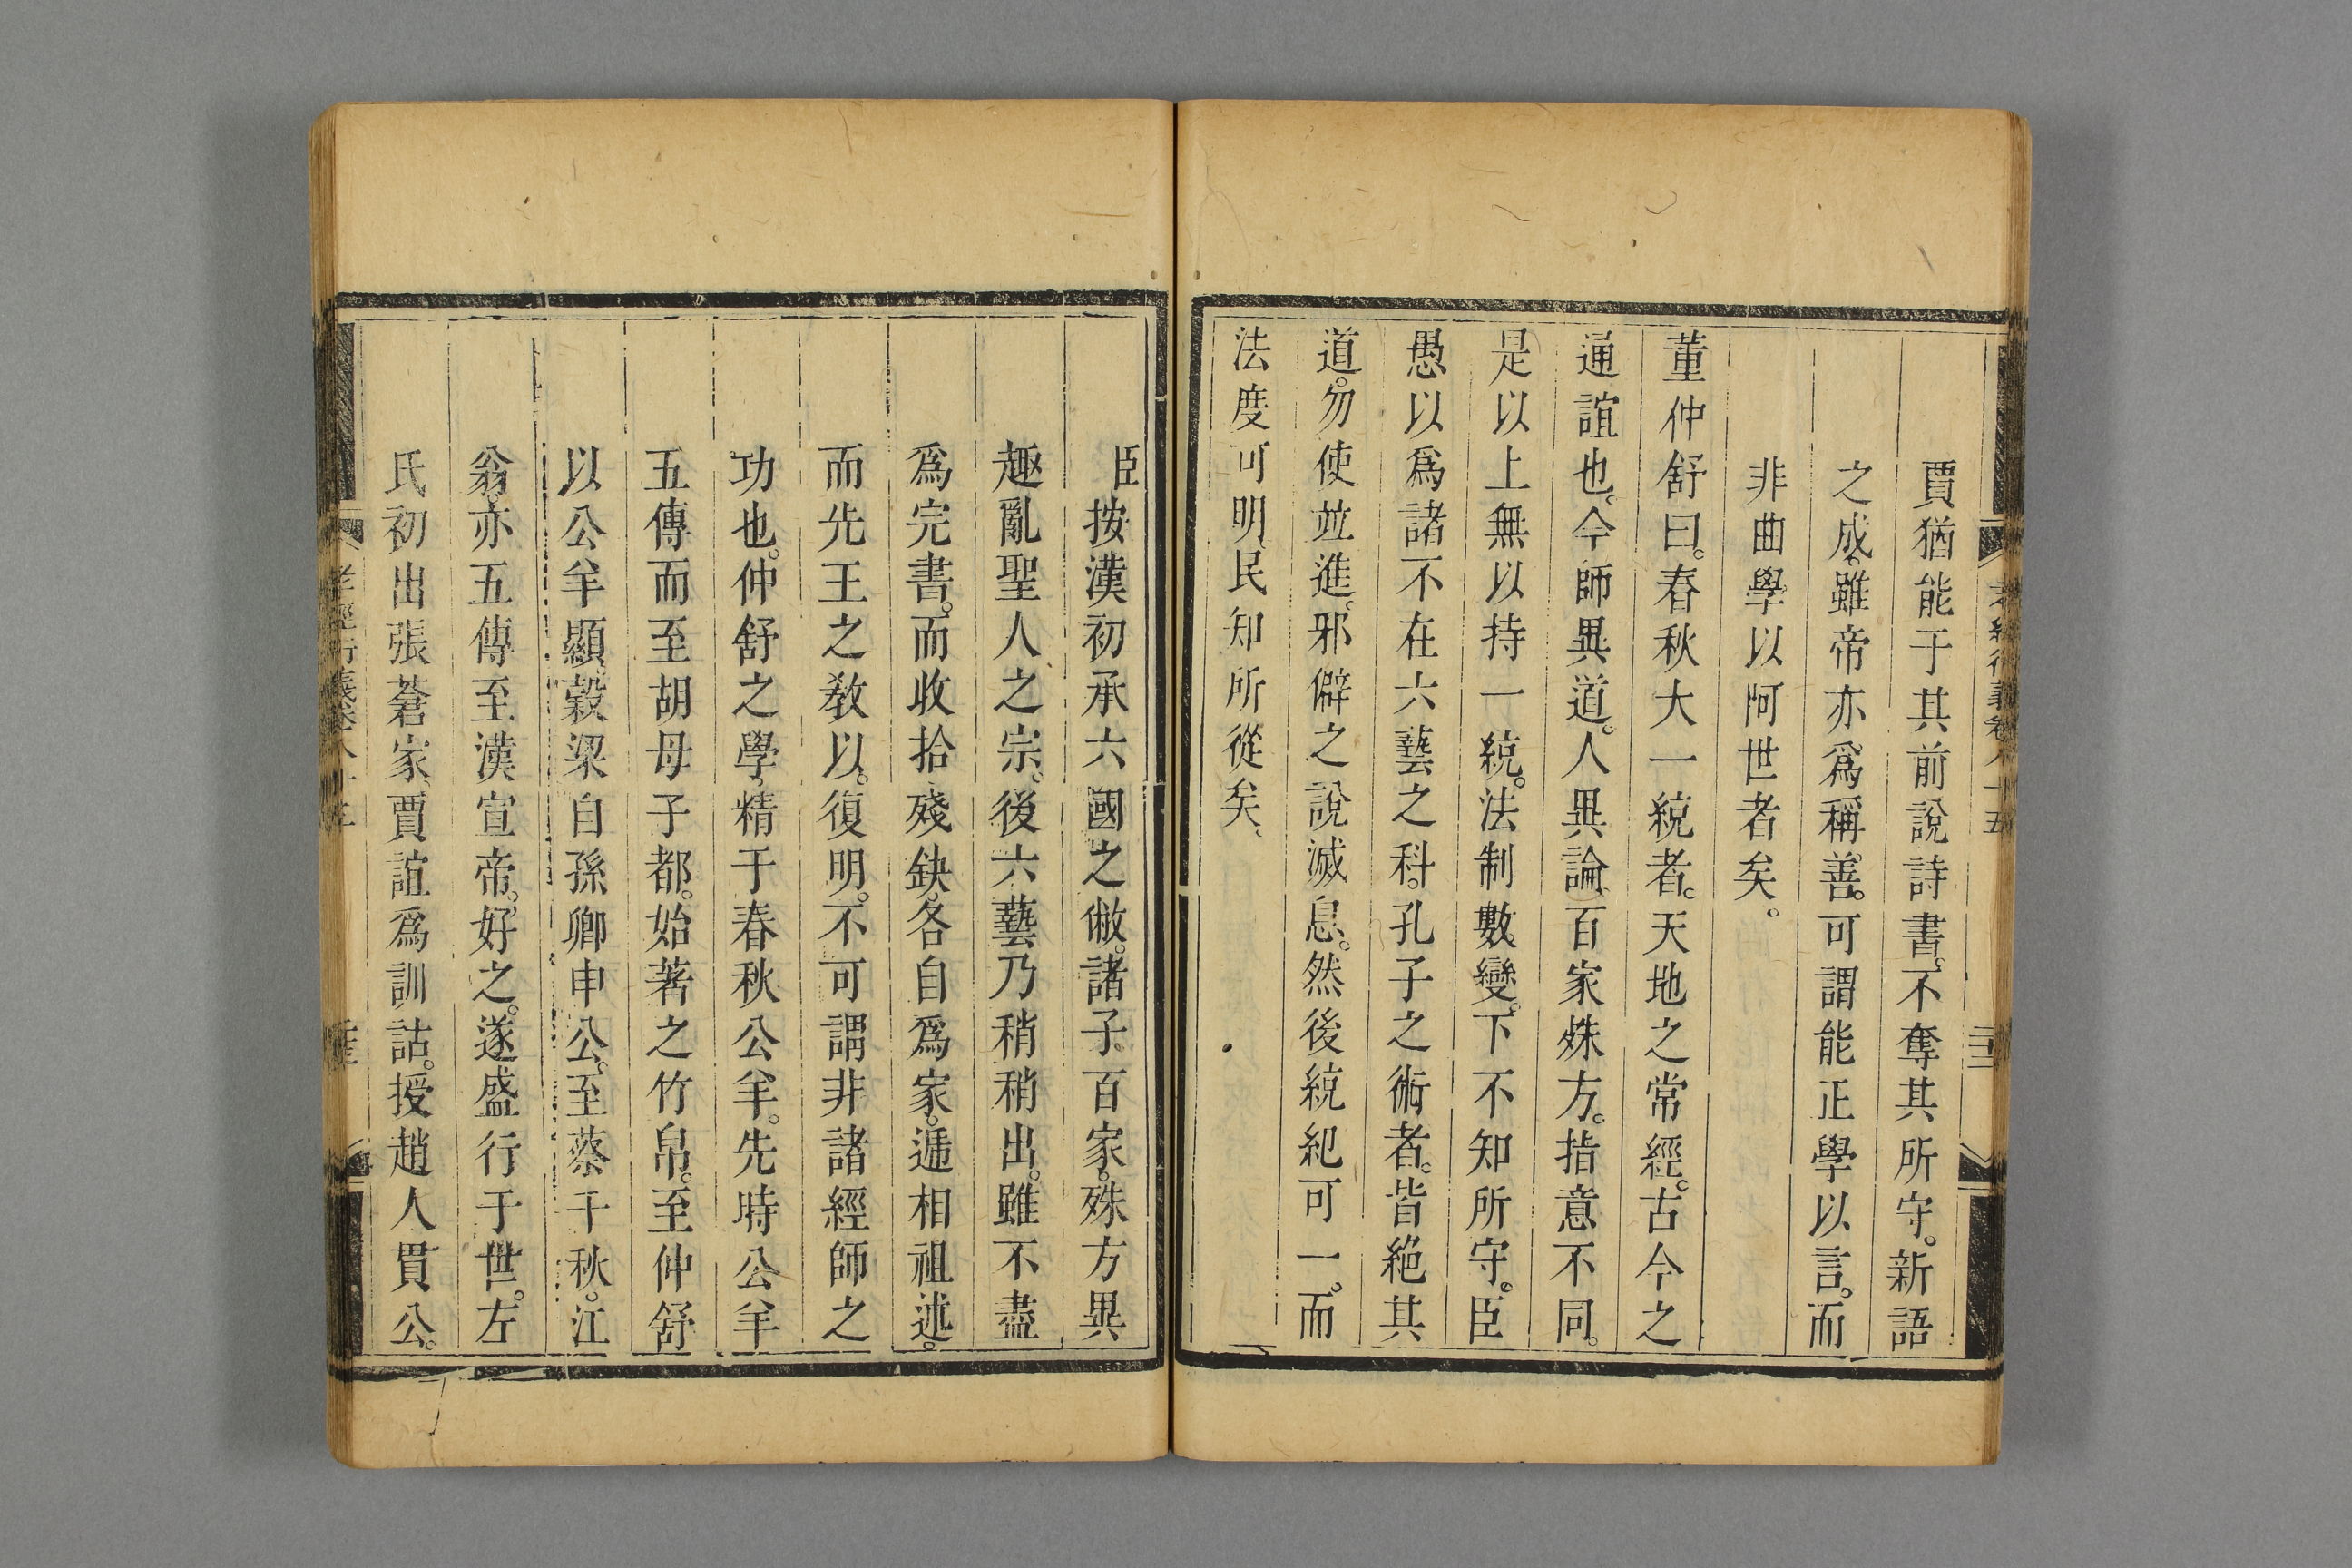 賈猶能于其前說詩書。不奪其所守。新語
之成。雖帝亦爲稱善。可謂能正學以言。而
非曲學以阿世者矣。
董仲舒曰。春秋大一統者。天地之常經。古今之
通誼也。今師異道。人異論。百家殊方。指意不同。
是以上無以持一統。法制數變。下不知所守。臣
愚以爲諸不在六藝之科。孔子之術者。皆絕其
道。勿使並進。邪僻之說滅息。然後統紀可一。而
法度可明、民知所從矣、
臣按漢初承六國之敝。諸子百家。殊方異
趣亂聖人之宗。後六藝乃稍稍出。雖不盡
爲完書。而收拾殘缺。各自爲家。遞相祖述。
而先王之教以。復明。不可謂非諸經師之
功也。仲舒之學、精于春秋公羊。先時公羊
五傳而至胡母子都。始著之竹帛。至仲舒
以公羊顯、穀梁自孫卿申公。至蔡千秋。江
翁。亦五傳至漢宣帝。好之。遂盛行于世。左
氏初出張蒼家、賈誼爲訓詁。授趙人貫公。